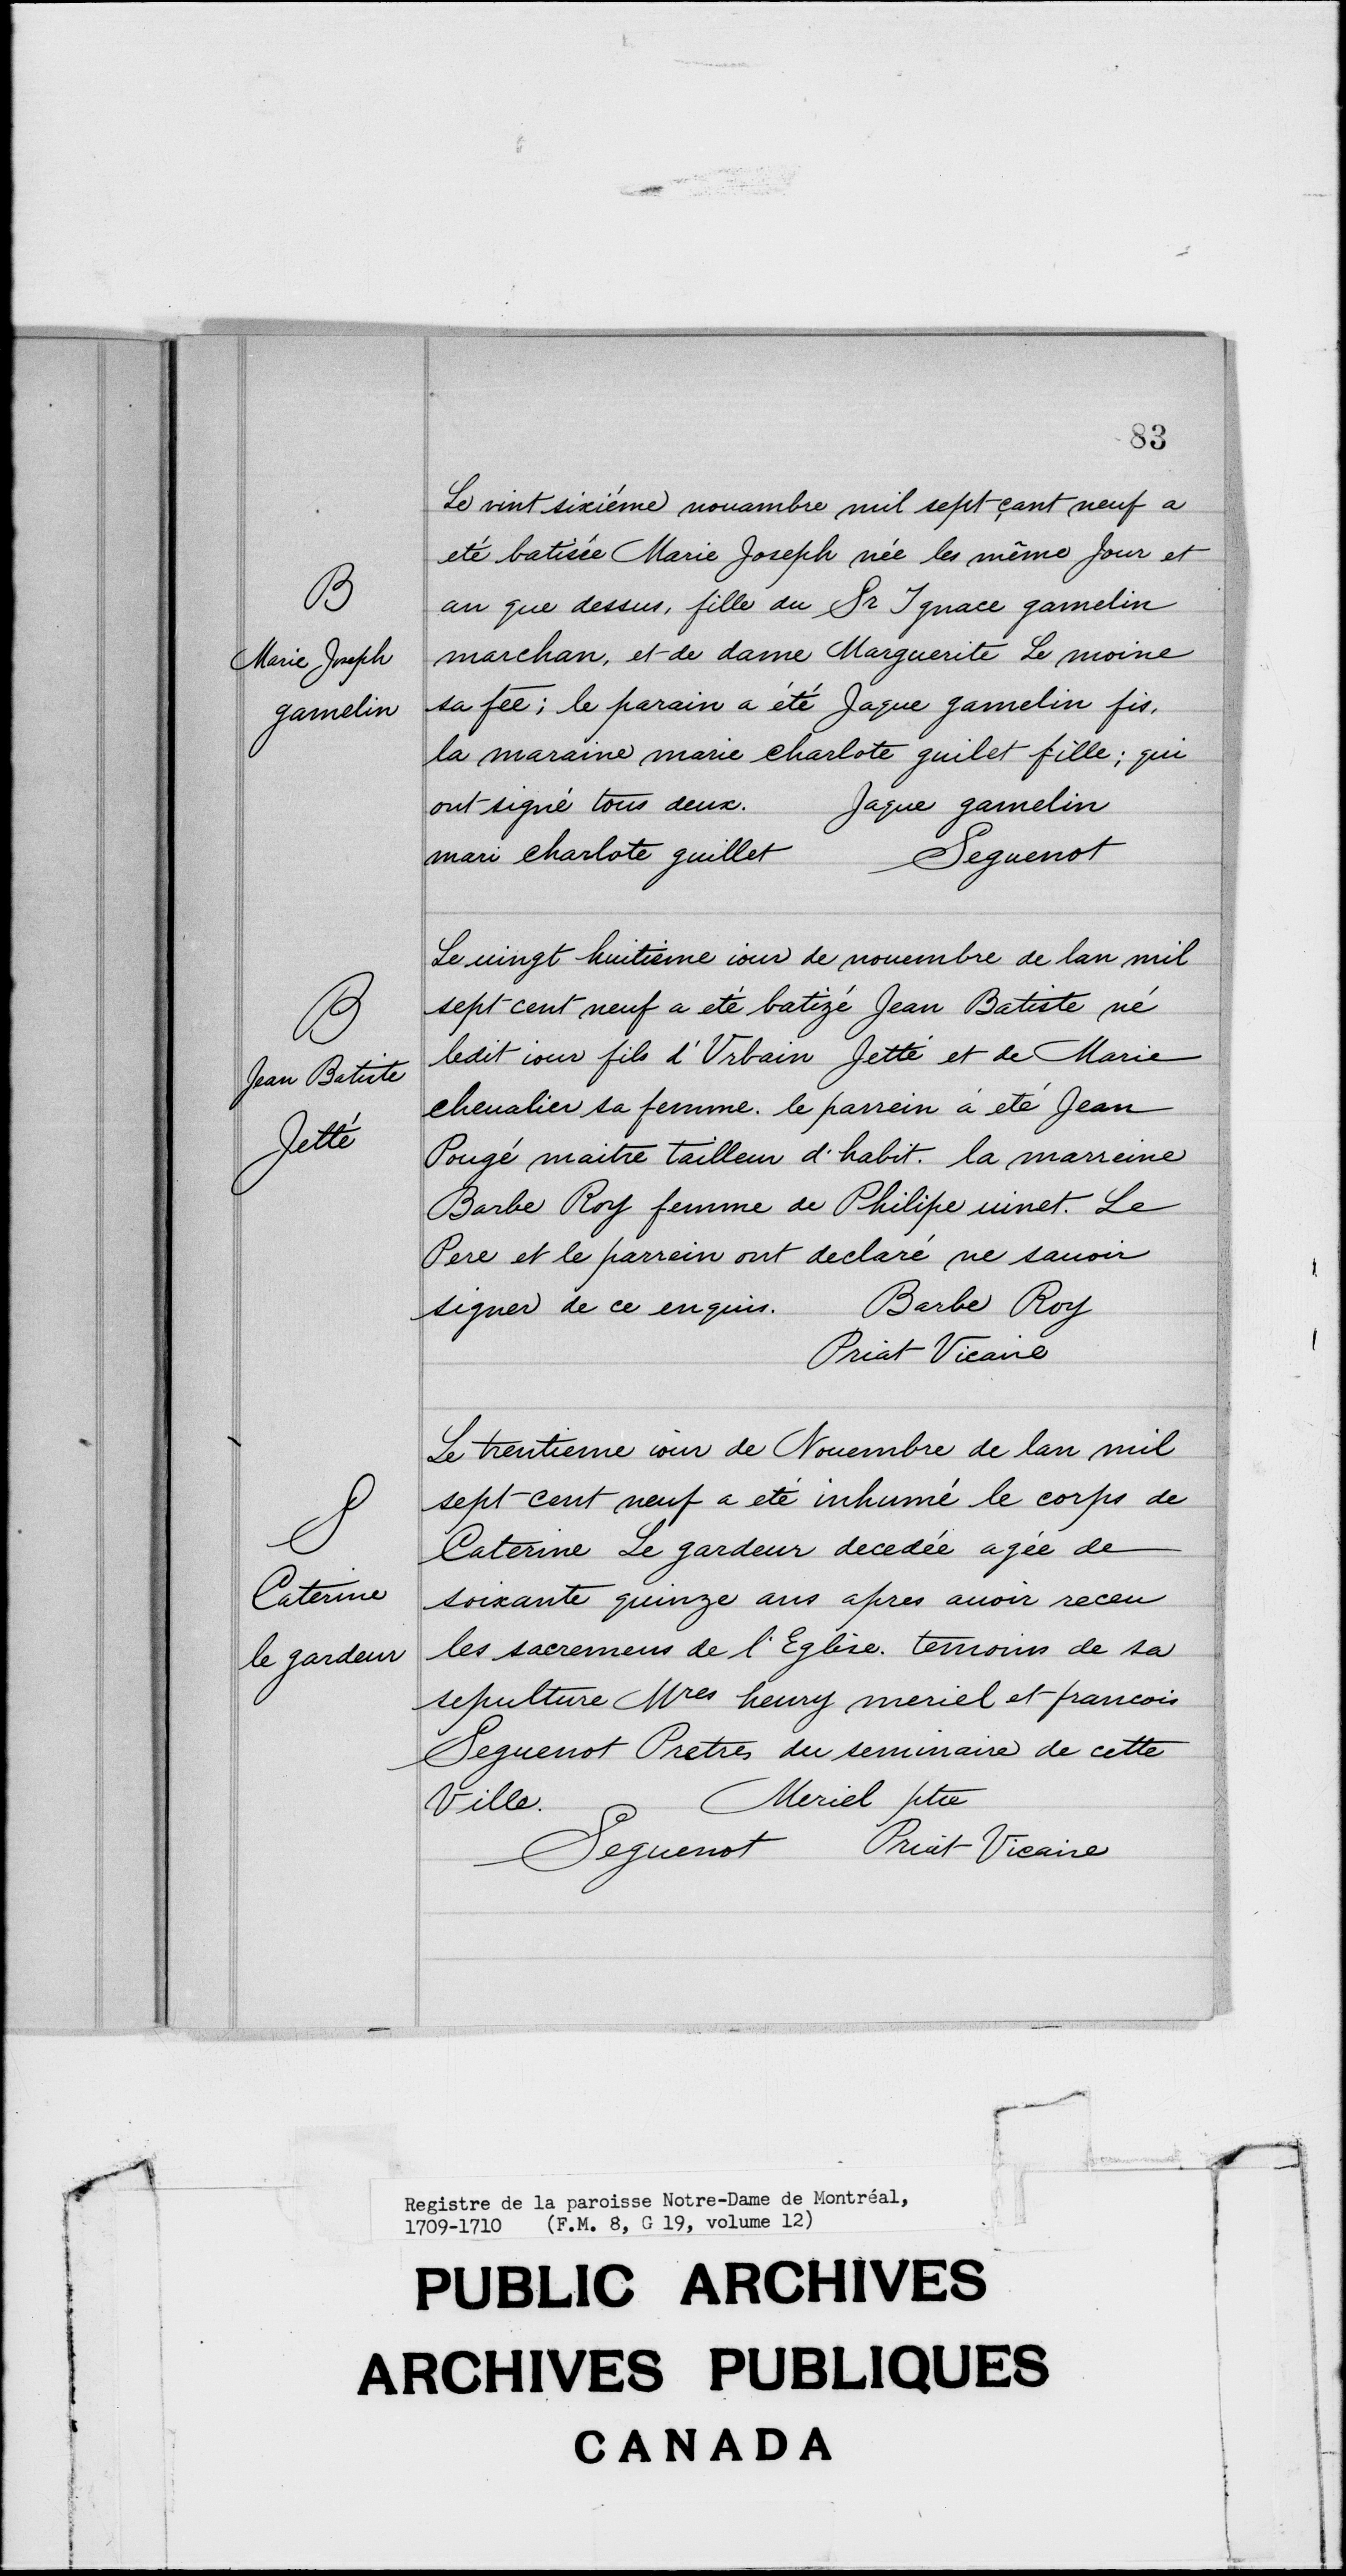 83
Le vint sixiéme nouambre mil sept çant neuf a
eté batisée Marie Joseph née les même Jour et
B
an que dessus, fille du Sr Ignace gamelin
Marie Joseph
marchan, et de dame Marguerite Le moine
gamelin
sa fée; le parain a été Jaque gamelin fis,
la maraine marie charlote guilet fille; qui
ont signé tous deux. Jaque gamelin
mari charlote guillet Seguenot
Le uingt huitieme iour de nouembre de lan mil
B
sept cent neuf a eté batizé Jean Batiste né
Jean Batiste
ledit iour fils d'Vrbain Jetté et de Marie
cheualier sa femme. le parrein á eté Jean
Jetté
Pougé maitre tailleur d'habit. la marreine
Barbe Roy femme de Philipe uinet. Le
Pere et le parrein ont declaré ne sauoir
signer de ce enquis. Barbe Roy
Priat Vicaire
Le trentieme iour de Nouembre de lan mil
S
sept cent neuf a eté inhumé le corps de
Caterine Le gardeur decedée agée de
Caterine
soixante quinze ans apres auoir receu
le gardeur
les sacremens de l'Eglise. temoins de sa
sepulture Mres henry meriel et francois
Seguenot Pretres du seminaire de cette
Ville. Meriel ptre
Seguenot Priat Vicaire
Registre de la paroisse Notre-Dame de Montréal,
1709-1710 (F.M. 8, G 19, volume 12)
PUBLIC ARCHIVES
ARCHIVES PUBLIQUES
CANADA